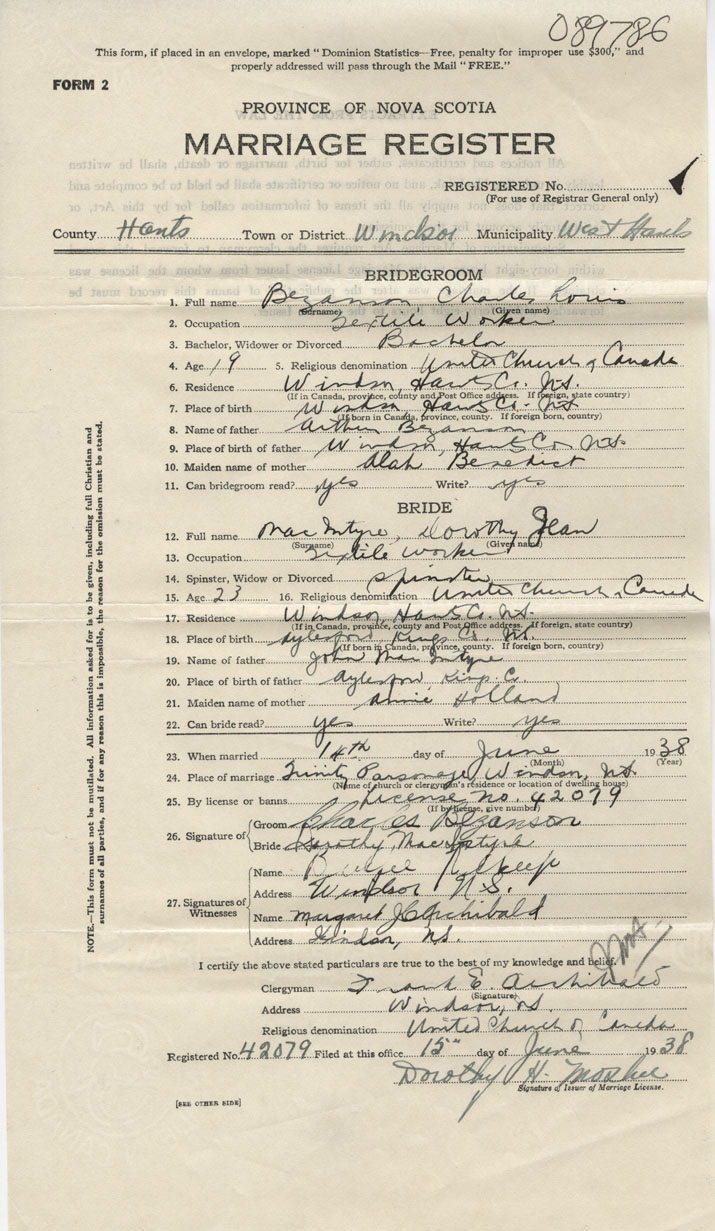 089786
This form, if placed in an envelope, marked "Dominion Statistics—Free, penalty for improper use $300," and
properly addressed will pass through the Mail "FREE."
FORM 2
PROVINCE OF NOVA SCOTIA
MARRIAGE REGISTER
REGISTERED No.
(For use of Registrar General only)
County Hants Town or District Windsor Municipality West Hants
BRIDEGROOM
1. Full name Bezanson Charles Louis
(Surname) (Given name)
2. Occupation Textile Worker
3. Bachelor, Widower or Divorced Bachelor
4. Age 19 5. Religious denomination United Church of Canada
6. Residence Windsor, Hants Co. N.S.
(If in Canada, province, county and Post Office address. If foreign, state country)
7. Place of birth Windsor, Hants Co. N.S.
(If born in Canada, province, county. If foreign born, country)
8. Name of father Arthur Bezanson
9. Place of birth of father Windsor, Hants Co N.S.
10. Maiden name of mother Benedict
11. Can bridegroom read? yes Write? yes
BRIDE
12. Full name MacIntyre, Dorothy Jean
(Surname) (Given name)
13. Occupation Textile worker
14. Spinster, Widow or Divorced Spinster
15. Age 23 16. Religious denomination United Church of Canada
17. Residence Windsor, Hants Co. N.S.
(If in Canada, province, county and Post Office address. If foreign, state country)
18. Place of birth Aylesford Kings Co. N.S.
(If born in Canada, province, county. If foreign born, country)
19. Name of father John MacIntyre
20. Place of birth of father Aylesford Kings C.
21. Maiden name of mother Annie Holland
22. Can bride read? yes Write? yes
23. When married 14th day of June 1938
(Month) (Year)
24. Place of marriage Trinity Parsonage, Windsor, N.S.
(Name of church or clergyman's residence or location of dwelling house)
25. By license or banns License No. 42079
(If by license, give number)
26. Signature of Groom Charles Bezanson
Bride Dorothy MacIntyre
27. Signatures of Witnesses
Name
Address Windsor N.S.
Name Margaret J Archibald
Address Windsor, N.S.
I certify the above stated particulars are true to the best of my knowledge and belief.
Clergyman Frank E. Archibald
(Signature)
Address Windsor, N.S.
Religious denomination United Church of Canada
Registered No. 42079 Filed at this office 15" day of June 1938
Dorothy H. Mosher
Signature of Issuer of Marriage License.
[SEE OTHER SIDE]
NOTE.—This form must not be mutilated. All information asked for is to be given, including full Christian and
surnames of all parties, and if for any reason this is impossible, the reason for the omission must be stated.